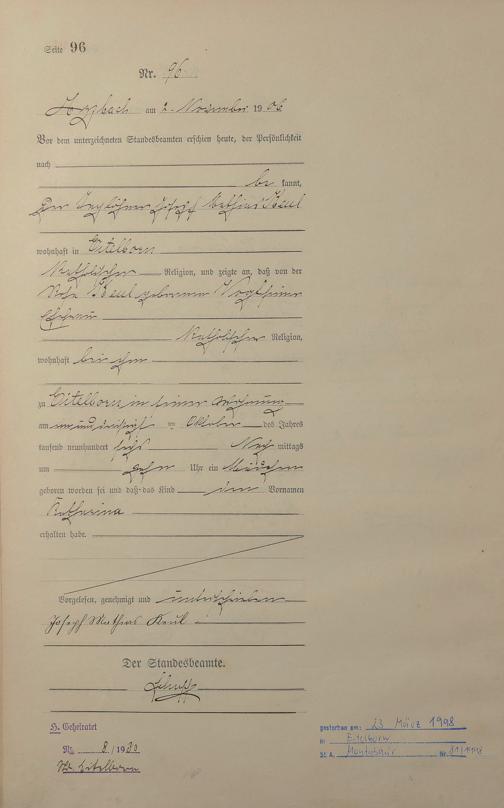 Seite 96
Nr. 96
am 2. November 1906
Vor dem unterzeichneten Standesbeamten erschien heute, der Persönlichkeit
nach
be kannt,
der Taglöhner Joseph Mathias Keul
wohnhaft in Eitelborn
katholischer Religion, und zeigte an, daß von der
Keul geborenen
Ehefrau
katholischer Religion,
wohnhaft bei ihm
zu Eitelborn in seiner Wohnung
am ein und dreißigsten Oktober des Jahres
tausend neunhundert sechs Nach mittags
um zehn Uhr ein Mädchen
geboren worden sei und daß das Kind den Vornamen
Katharina
erhalten habe.
Vorgelesen, genehmigt und unterschrieben
Joseph Mathias Keul
Der Standesbeamte.
H. Geheiratet
Nr. 8/1930
Eitelborn
gestorben am: 23 März 1998
in Eitelborn
St A. Montabaur Nr.